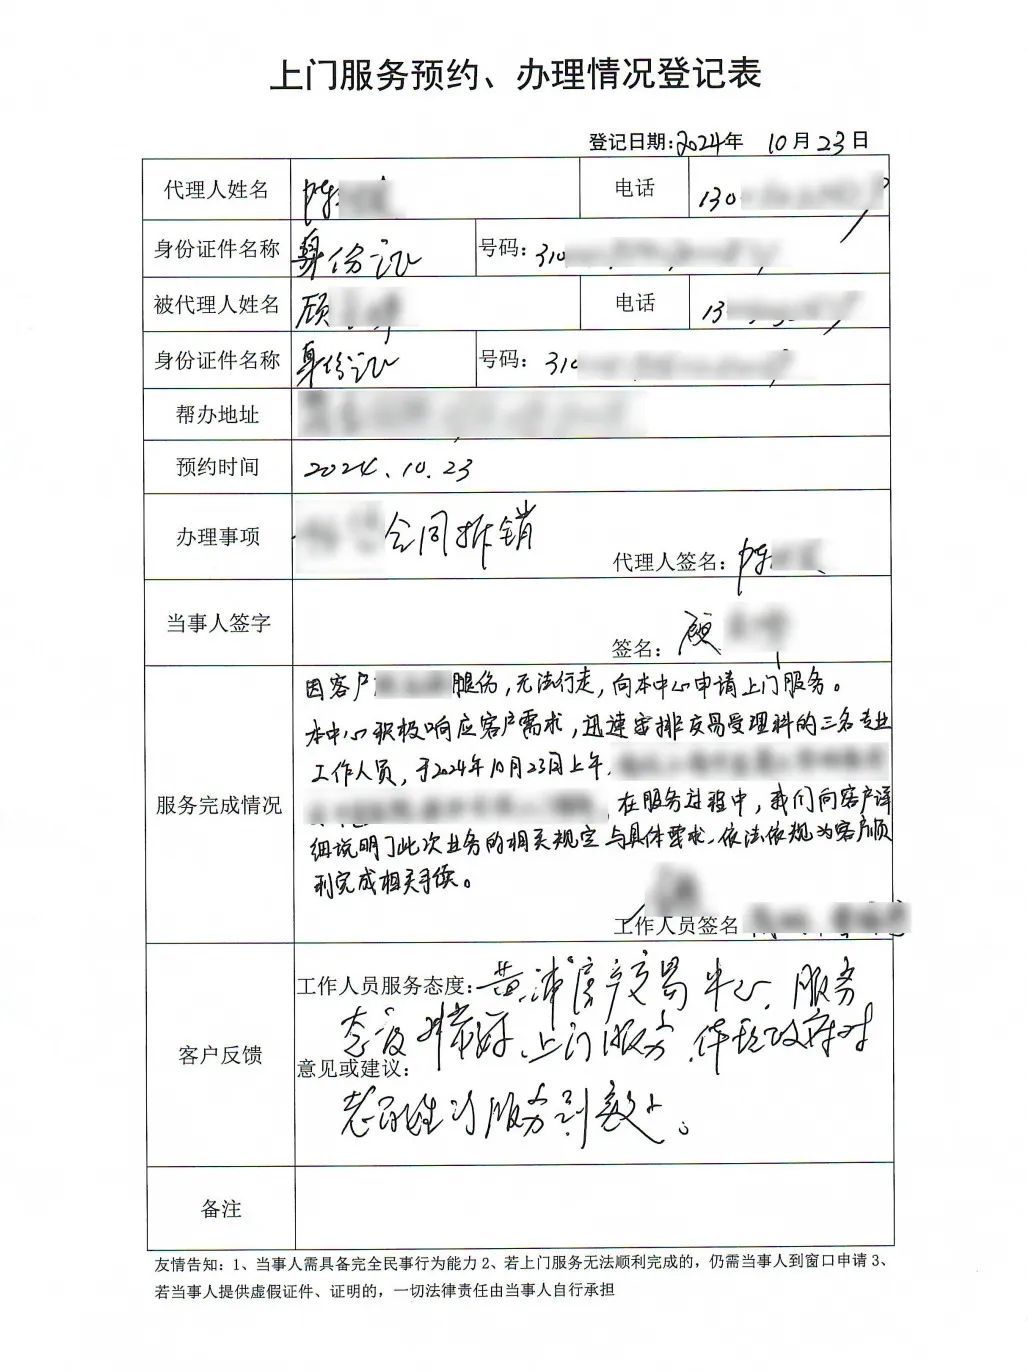 上门服务预约、办理情况登记表
登记日期:2024年 10月23日
代理人姓名 陈 电话 130
身份证件名称 身份证 号码: 310
被代理人姓名 顾 电话 13
身份证件名称 身份证 号码: 310
帮办地址
预约时间 2024.10.23
办理事项 合同拆销
代理人签名: 陈
当事人签字
签名: 顾
服务完成情况
因客户 腿伤,无法行走,向本中心申请上门服务。
本中心积极响应客户需求,迅速安排交易受理科的三名专业
工作人员,于2024年10月23日上午,
在服务过程中,我们向客户详
细说明了此次业务的相关规定与具体要求,依法依规为客户顺
利完成相关手续。
工作人员签名
客户反馈
工作人员服务态度: 黄浦房产交易中心,服务
态度非常好,上门服务,体现政府对
意见或建议:
老百姓的服务到家。
备注
友情告知:1、当事人需具备完全民事行为能力2、若上门服务无法顺利完成的,仍需当事人到窗口申请3、
若当事人提供虚假证件、证明的,一切法律责任由当事人自行承担